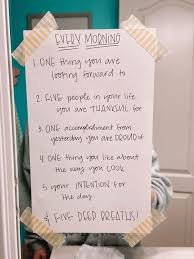 EVERY MORNING
1. ONE thing you are
looking forward to
2. FIVE people in your life
you are THANKFUL for
3. ONE accomplishment from
yesterday you are PROUD of
4. ONE thing you like about
the way you LOOK
5. your INTENTION for
the day
& FIVE DEEP BREATHS!